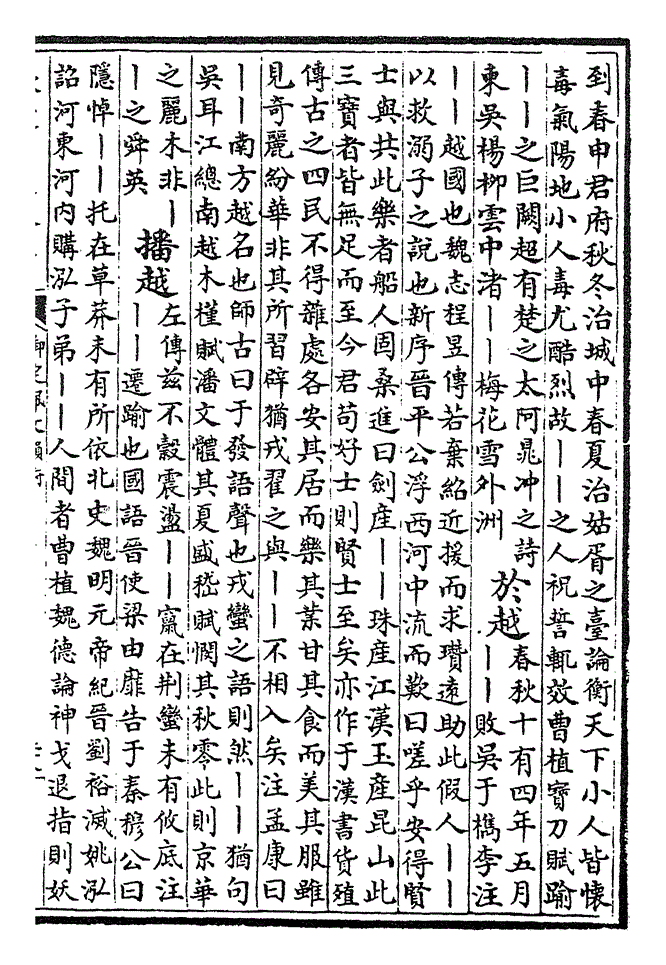 到春申君府秋冬治城中春夏治姑胥之臺論衡天下小人皆懷
毒氣陽地小人毒尤酷烈故——之人祝誓輒效曹植寶刀賦踰
——之巨闕超有楚之太阿晁沖之詩
東吳楊柳雲中渚——梅花雪外洲
於越
春秋十有四年五月
——敗吳于檇李注
——越國也魏志程昱傳若棄紹近援而求瓚遠助此假人——
以救溺子之說也新序晉平公浮西河中流而歎曰嗟乎安得賢
士與共此樂者船人固桑進曰劍產——珠產江漢玉產昆山此
三寶者皆無足而至今君苟好士則賢士至矣亦作于漢書貨殖
傳古之四民不得雜處各安其居而樂其業甘其食而美其服雖
見奇麗紛華非其所習辟猶戎翟之與——不相入矣注孟康曰
——南方越名也師古曰于發語聲也戎蠻之語則然——猶句
吳耳江總南越木槿賦潘文體其夏盛嵇賦憫其秋零此則京華
之麗木非—
—之舜英
播越
左傳茲不穀震盪——竄在荆蠻未有攸底注
——遷踰也國語晉使梁由靡告于秦穆公曰
隱悼——托在草莽未有所依北史魏明元帝紀晉劉裕滅姚泓
詔河東河內購泓子弟——人間者曹植魏德論神戈退指則妖